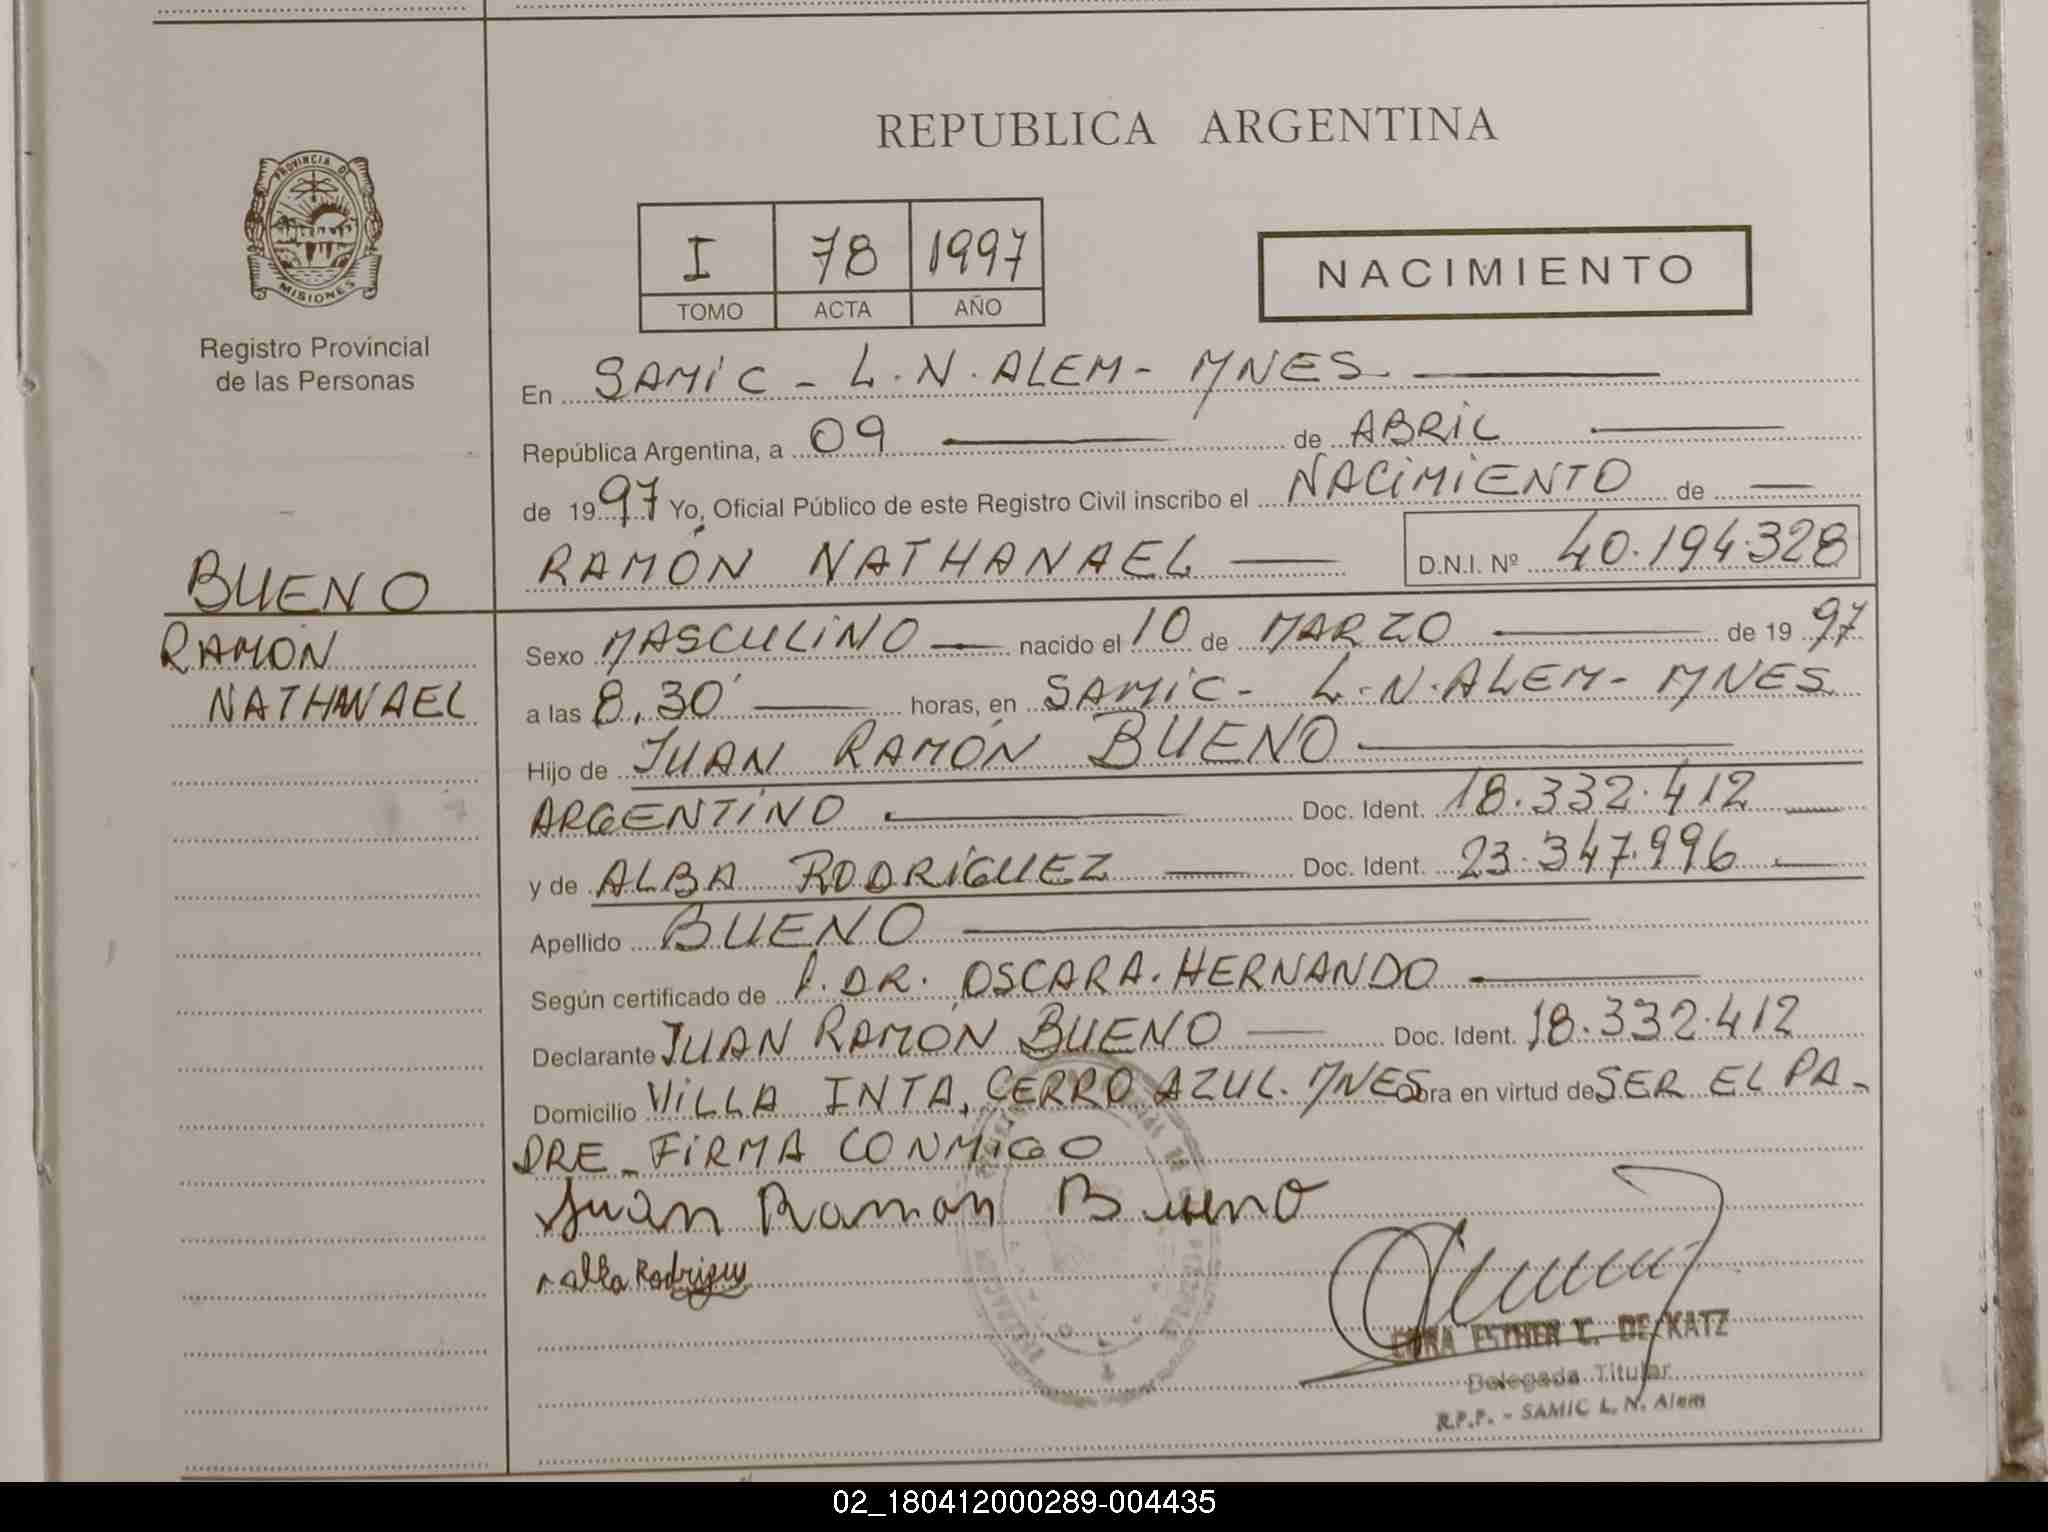 REPUBLICA ARGENTINA
PROVINCIA DE
MISIONES
Registro Provincial
de las Personas
I 78 1997
TOMO ACTA AÑO
NACIMIENTO
En SAMIC - L.N. ALEM - MNES
República Argentina, a 09 de ABRIL
de 1997 Yo, Oficial Público de este Registro Civil inscribo el NACIMIENTO de
RAMÓN NATHANAEL D.N.I. Nº 40.194.328
BUENO
RAMÓN
NATHANAEL
Sexo MASCULINO nacido el 10 de MARZO de 1997
a las 8,30' horas, en SAMIC - L.N. ALEM - MNES
Hijo de JUAN RAMÓN BUENO
ARGENTINO Doc. Ident. 18.332.412
y de ALBA RODRÍGUEZ Doc. Ident. 23.347.996
Apellido BUENO
Según certificado de DR. OSCAR A. HERNANDO
Declarante JUAN RAMÓN BUENO Doc. Ident. 18.332.412
Domicilio VILLA INTA, CERRO AZUL. MNES Obra en virtud de SER EL PA-
DRE - FIRMA CONMIGO
Juan Ramon Bueno
Alba Rodrigues
CORA ESTHER C. DE KATZ
Delegada Titular
R.P.P. - SAMIC L. N. Alem
02_180412000289-004435